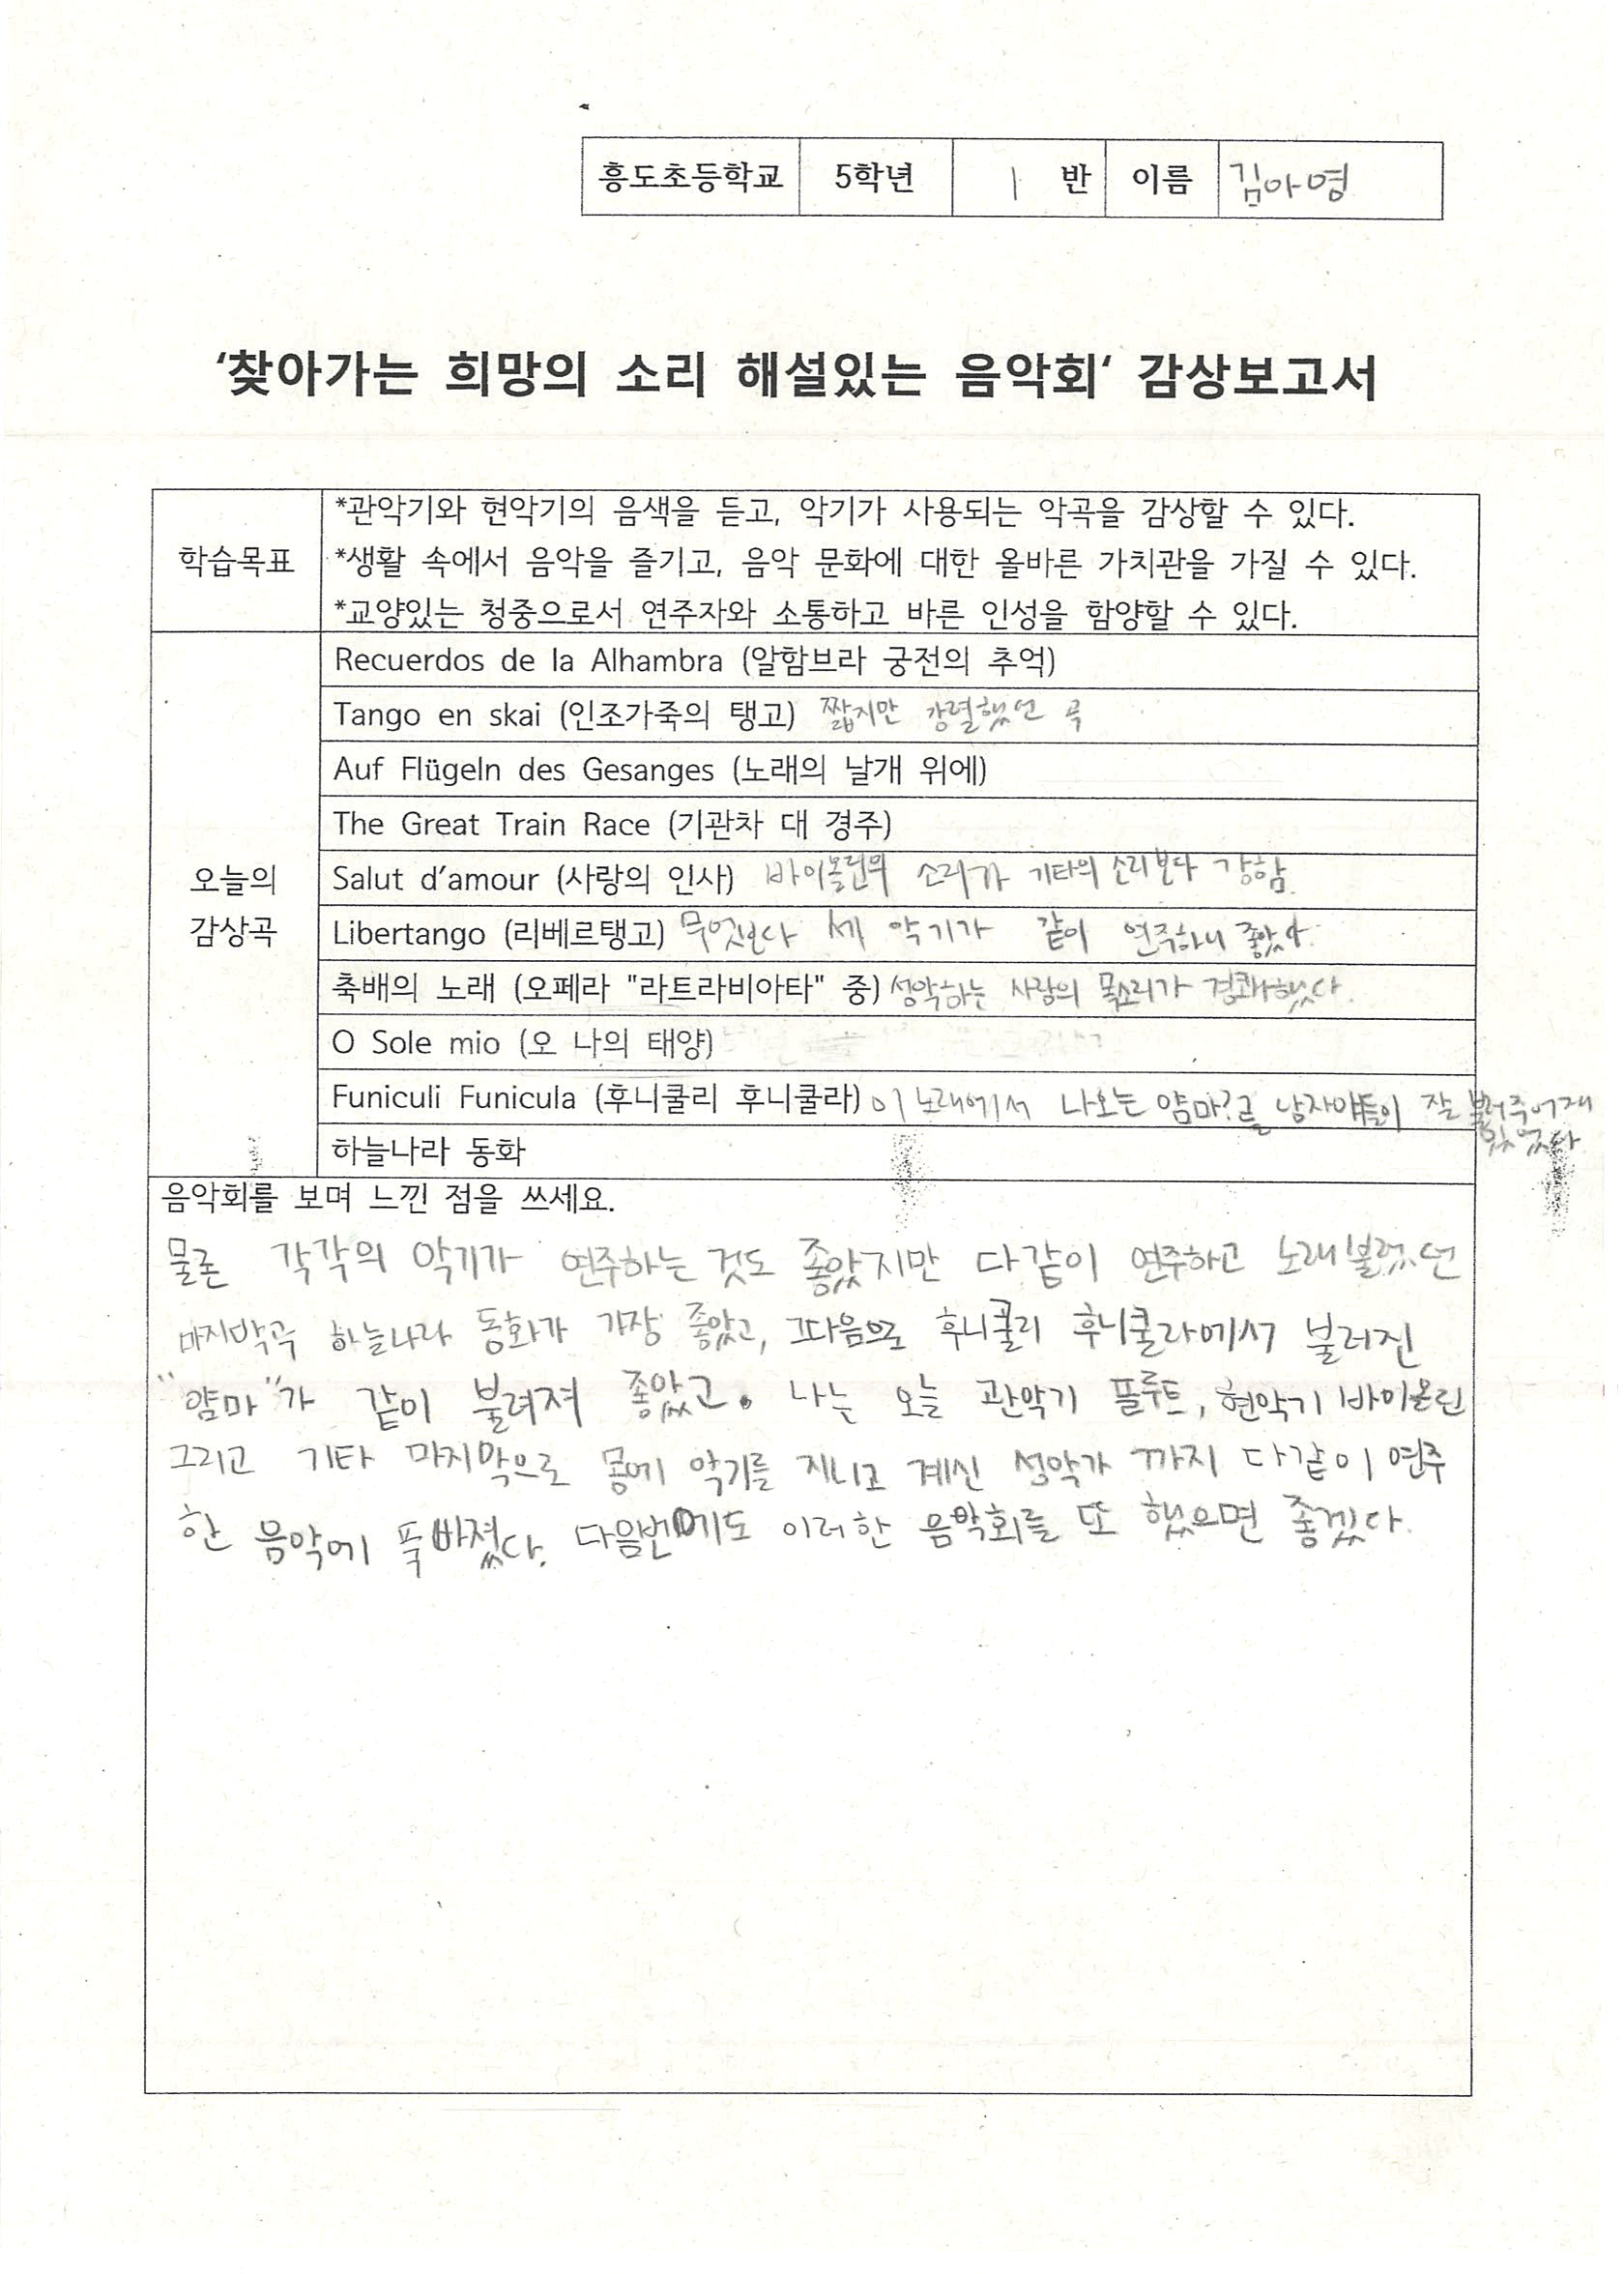 흥도초등학교 5학년 1 반 이름 김아영
‘찾아가는 희망의 소리 해설있는 음악회‘ 감상보고서
학습목표
*관악기와 현악기의 음색을 듣고, 악기가 사용되는 악곡을 감상할 수 있다.
*생활 속에서 음악을 즐기고, 음악 문화에 대한 올바른 가치관을 가질 수 있다.
*교양있는 청중으로서 연주자와 소통하고 바른 인성을 함양할 수 있다.
오늘의
감상곡
Recuerdos de la Alhambra (알함브라 궁전의 추억)
Tango en skai (인조가죽의 탱고) 짧지만 강렬했던 곡
Auf Flügeln des Gesanges (노래의 날개 위에)
The Great Train Race (기관차 대 경주)
Salut d’amour (사랑의 인사) 바이올린의 소리가 기타의 소리보다 강함.
Libertango (리베르탱고) 무엇보다 세 악기가 같이 연주하니 좋았다.
축배의 노래 (오페라 "라트라비아타" 중) 성악하는 사람의 목소리가 경쾌했다.
O Sole mio (오 나의 태양)
Funiculi Funicula (후니쿨리 후니쿨라) 이 노래에서 나오는 얌마?를 남자애들이 잘 불러주어 재
있었다
하늘나라 동화
음악회를 보며 느낀 점을 쓰세요.
물론 각각의 악기가 연주하는 것도 좋았지만 다같이 연주하고 노래불렀던
마지막곡 하늘나라 동화가 가장 좋았고, 그다음으로 후니쿨리 후니쿨라에서 불러진
"얌마"가 같이 불려져 좋았고. 나는 오늘 관악기 플루트, 현악기 바이올린
그리고 기타 마지막으로 몸에 악기를 지니고 계신 성악가 까지 다같이 연주
한 음악에 푹 빠졌다. 다음번에도 이러한 음악회를 또 했으면 좋겠다.